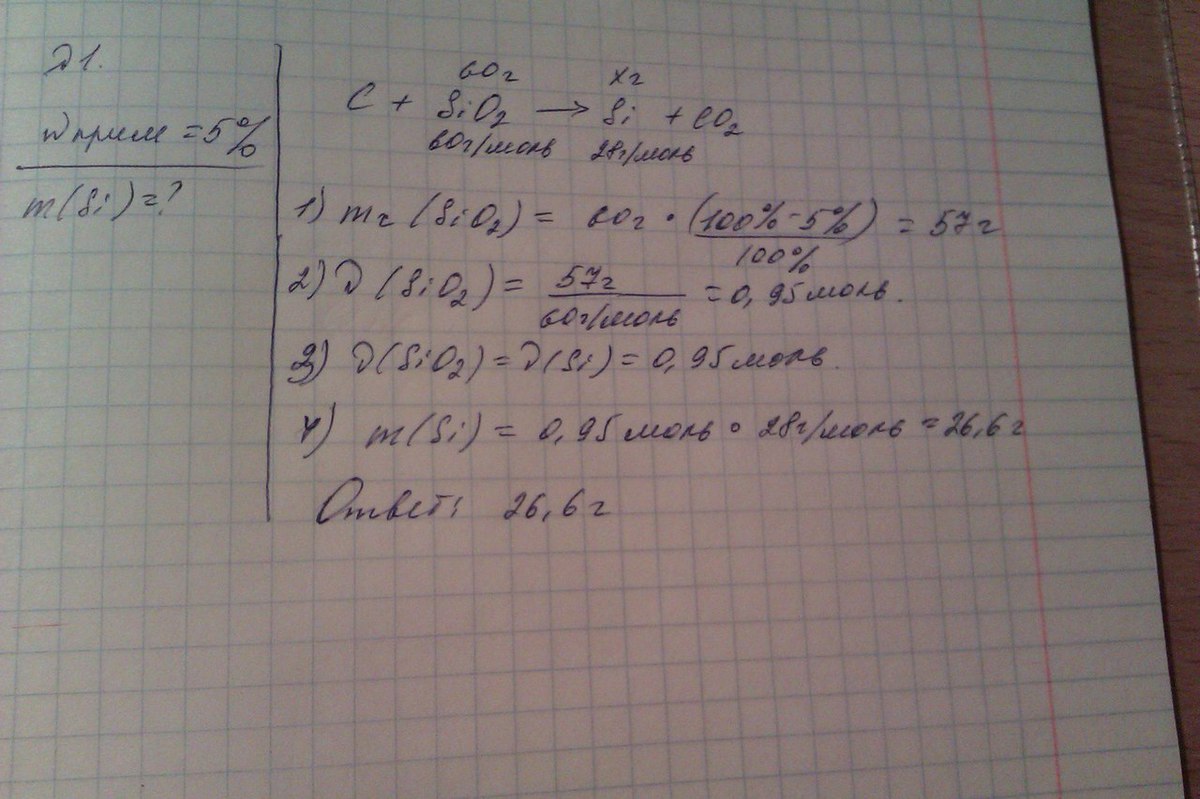 №1.
w прим = 5%
m(Si) = ?
60г хг
C + SiO2 → Si + CO2
60г/моль 28г/моль
1) mч (SiO2) = 60г • (100% - 5%) / 100% = 57г
2) ν (SiO2) = 57г / 60г/моль = 0,95 моль.
3) ν(SiO2) = ν(Si) = 0,95 моль.
4) m(Si) = 0,95 моль • 28г/моль = 26,6г
Ответ: 26,6г